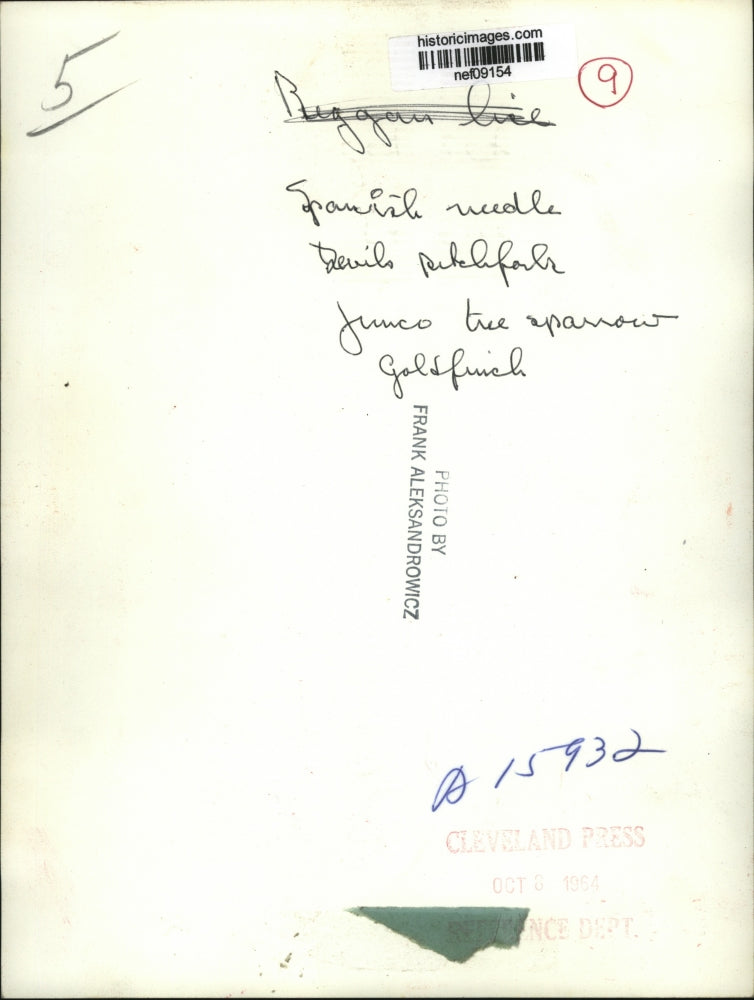 historicimages.com
nef09154
5
9
Beggars lice
Spanish needle
Devils pitchfork
Junco tree sparrow
Goldfinch
PHOTO BY
FRANK ALEKSANDROWICZ
A 15932
CLEVELAND PRESS
OCT 8 1964
REFERENCE DEPT.